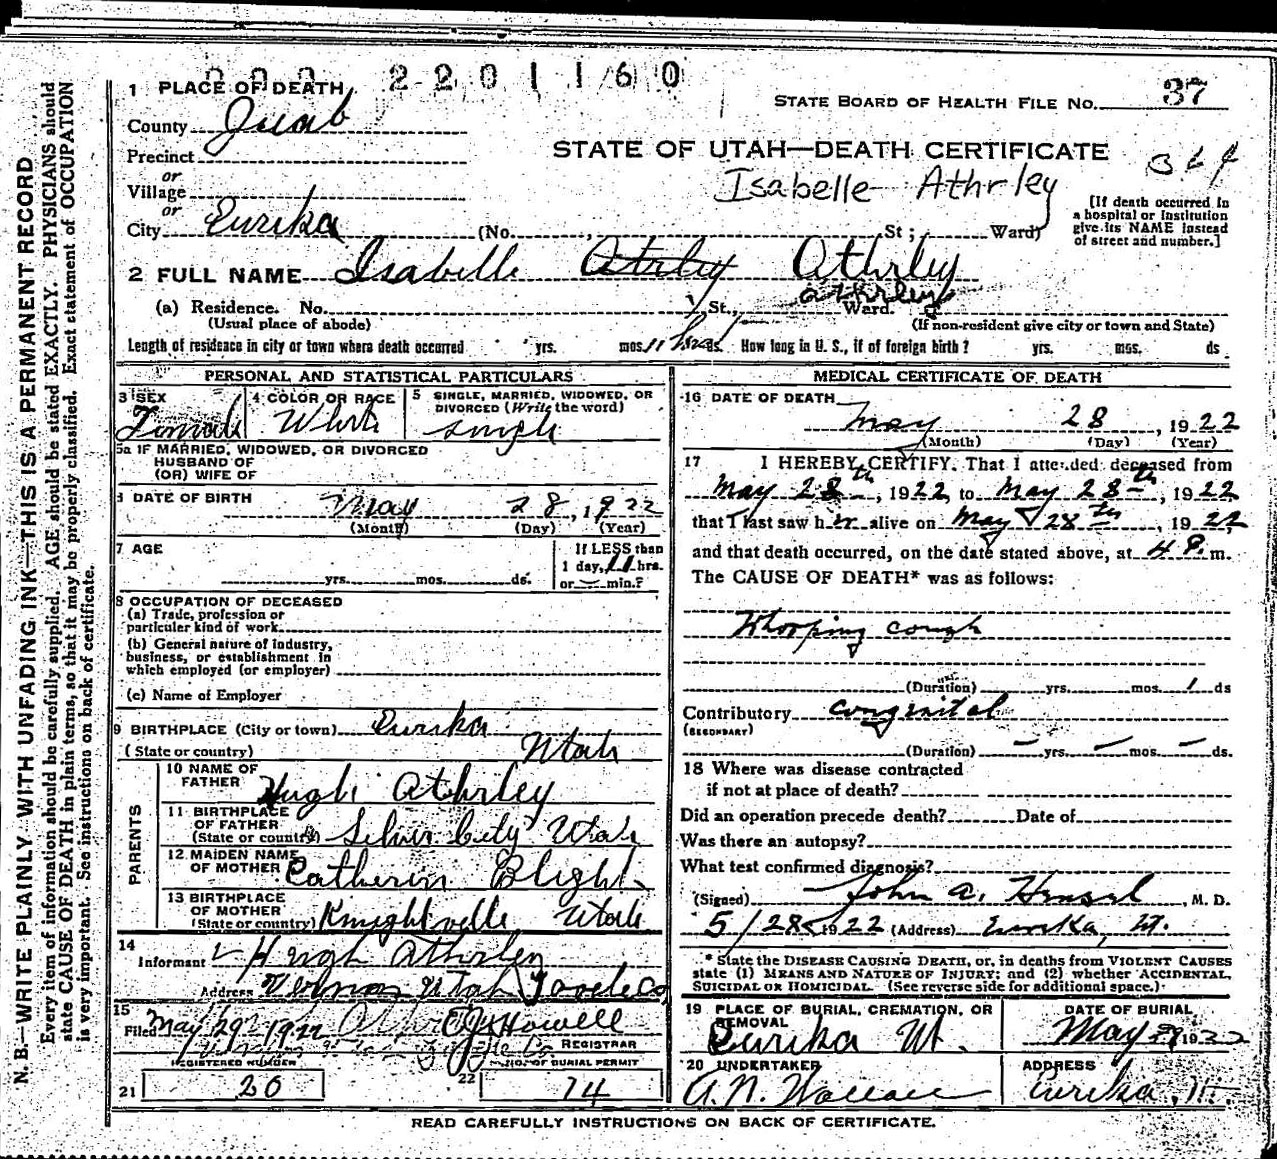 2201160
1 PLACE OF DEATH
STATE BOARD OF HEALTH FILE NO. 37
County Juab
STATE OF UTAH—DEATH CERTIFICATE
Precinct
or
Isabelle Athrley
Village
or
City Eureka (No. , St ; Ward)
[If death occurred in
a hospital or institution
give its NAME instead
of street and number.]
2 FULL NAME Isabelle Atrley Athrley
athrley
(a) Residence. No. St., Ward.
(Usual place of abode) (If non-resident give city or town and State)
Length of residence in city or town where death occurred yrs. mos. 11 hrs ds. How long in U. S., if of foreign birth? yrs. mos. ds
PERSONAL AND STATISTICAL PARTICULARS
3 SEX 4 COLOR OR RACE 5 SINGLE, MARRIED, WIDOWED, OR
DIVORCED (Write the word)
Female White single
5a IF MARRIED, WIDOWED, OR DIVORCED
HUSBAND OF
(OR) WIFE OF
6 DATE OF BIRTH May 28, 1922
(Month) (Day) (Year)
7 AGE If LESS than
yrs. mos. ds. 1 day, 11 hrs.
or — min.?
8 OCCUPATION OF DECEASED
(a) Trade, profession or
particular kind of work
(b) General nature of industry,
business, or establishment in
which employed (or employer)
(c) Name of Employer
9 BIRTHPLACE (City or town) Eureka
(State or country) Utah
PARENTS
10 NAME OF
FATHER Hugh Athrley
11 BIRTHPLACE
OF FATHER
(State or country) Silver City Utah
12 MAIDEN NAME
OF MOTHER Catherin Blight
13 BIRTHPLACE
OF MOTHER
(State or country) Knightville Utah
14
Informant Hugh Athrley
Address Vernon Utah Tooele Co
15
Filed May 29 1922 Howell
REGISTRAR
REGISTERED NUMBER NO. OF BURIAL PERMIT
21 20 22 14
MEDICAL CERTIFICATE OF DEATH
16 DATE OF DEATH
May 28, 1922
(Month) (Day) (Year)
17 I HEREBY CERTIFY. That I attended deceased from
May 28th, 1922, to May 28th, 1922
that I last saw her alive on May 28th, 1922
and that death occurred, on the date stated above, at 4 P. m.
The CAUSE OF DEATH* was as follows:
Whooping cough
(Duration) yrs. mos. 1 ds
Contributory congenital
(SECONDARY)
(Duration) — yrs. — mos. — ds.
18 Where was disease contracted
if not at place of death?
Did an operation precede death? Date of
Was there an autopsy?
What test confirmed diagnosis?
(Signed) John A. Hensel, M. D.
5/28 1922 (Address) Eureka, Ut.
* State the DISEASE CAUSING DEATH, or, in deaths from VIOLENT CAUSES
state (1) MEANS AND NATURE OF INJURY; and (2) whether ACCIDENTAL,
SUICIDAL OR HOMICIDAL. (See reverse side for additional space.)
19 PLACE OF BURIAL, CREMATION, OR
REMOVAL
DATE OF BURIAL
Eureka Ut. May 29 1922
20 UNDERTAKER ADDRESS
A. N. Wallace Eureka, Ut.
READ CAREFULLY INSTRUCTIONS ON BACK OF CERTIFICATE.
N. B.—WRITE PLAINLY WITH UNFADING INK—THIS IS A PERMANENT RECORD
Every item of information should be carefully supplied. AGE should be stated EXACTLY. PHYSICIANS should
state CAUSE OF DEATH in plain terms, so that it may be properly classified. Exact statement of OCCUPATION
is very important. See instructions on back of certificate.